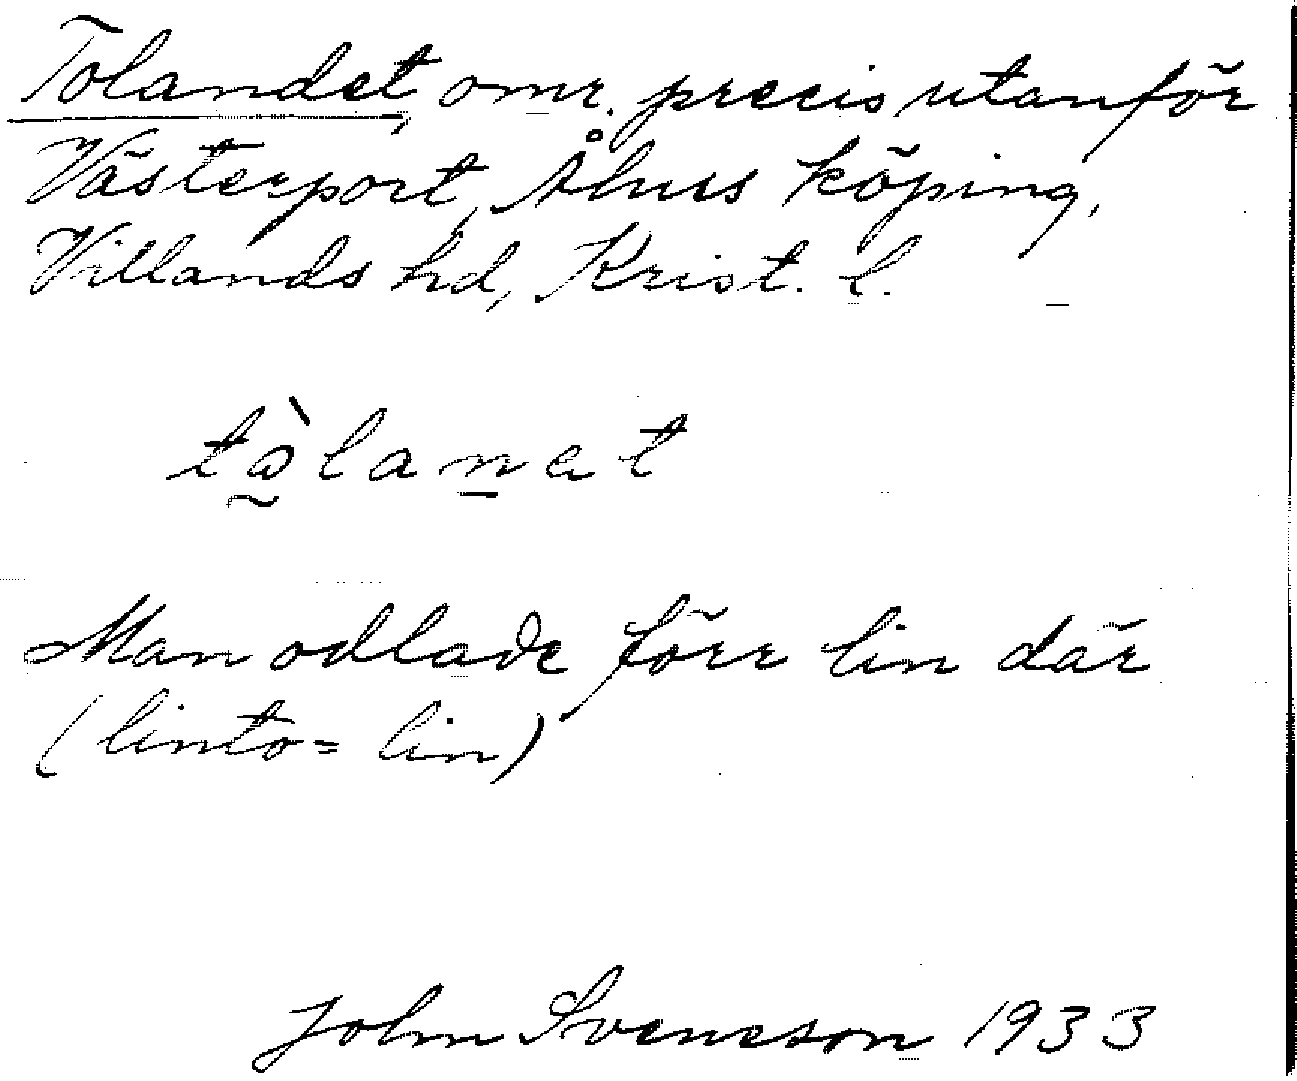 Tolandet, omr. precis utanför
Västerport, Åhus köping,
Villands hd, Krist. l.
tò̰lan̲et
Man odlade förr lin där
(linto = lin)
John Svenson 1933